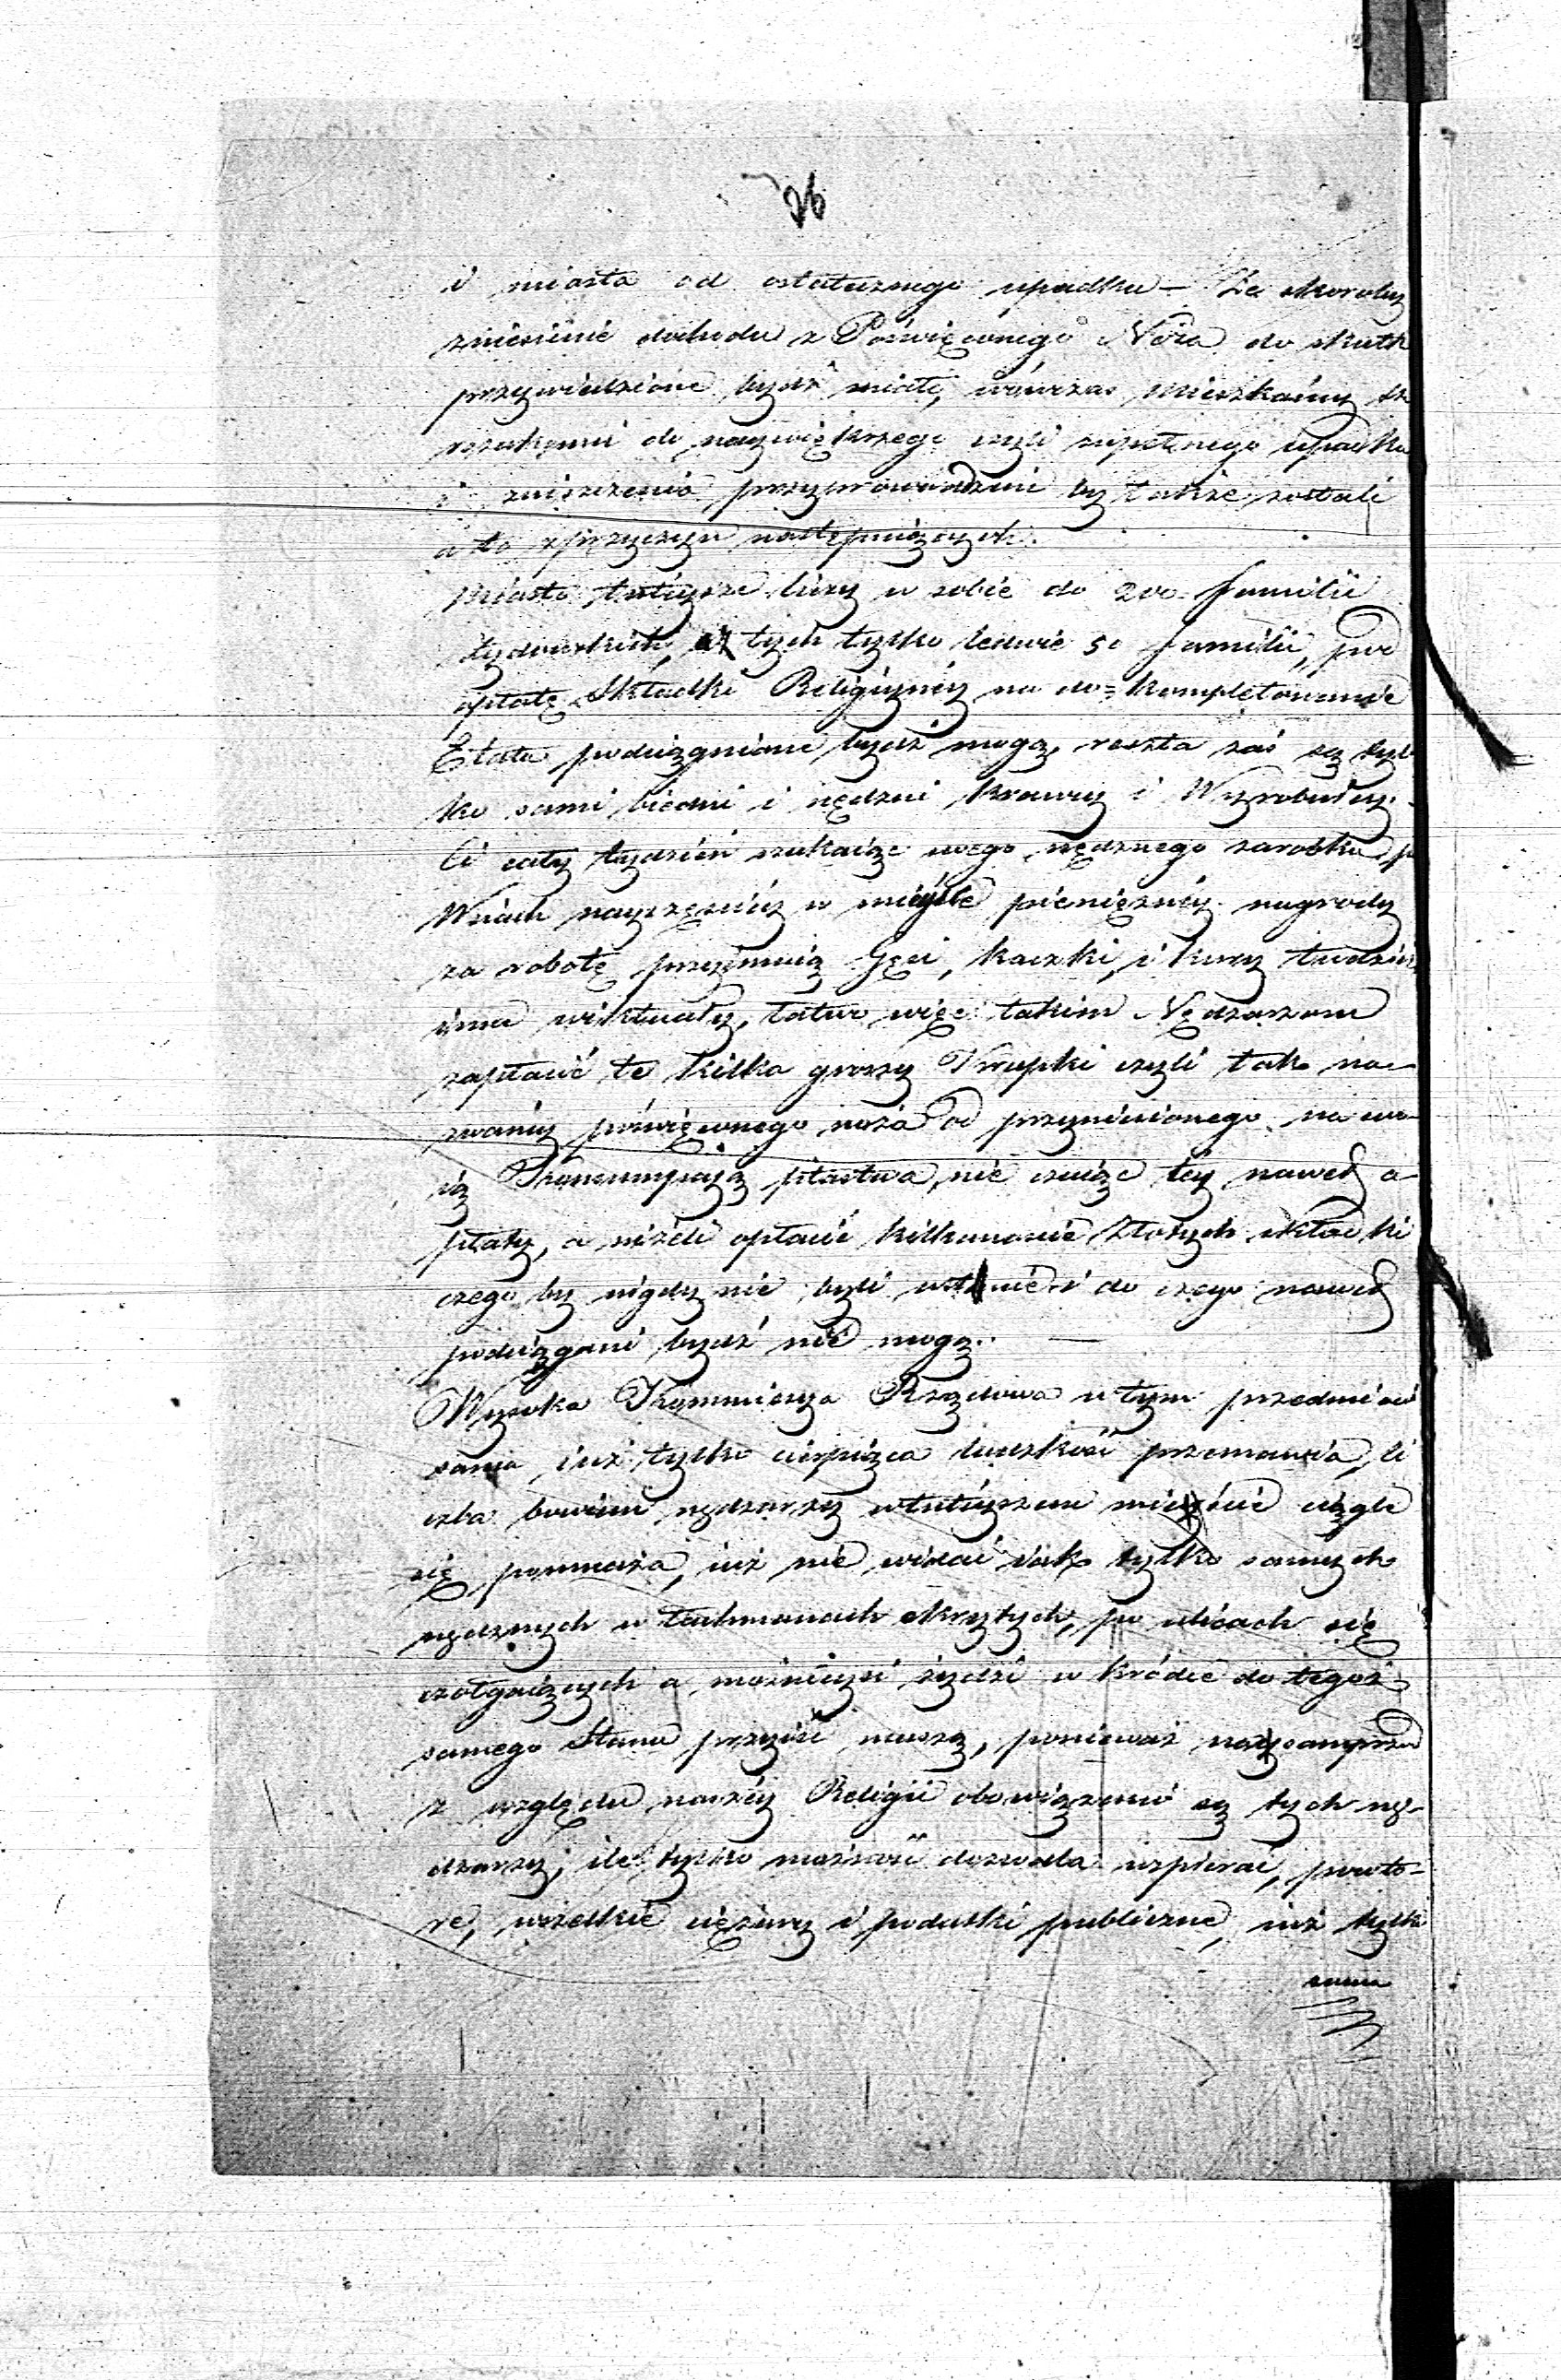 26
i miasta od ostatecznego upadku – Za skoroby
zniesienie dochodu z Poświęconego Noża do skutk
przywiedzione bydź miało, wówczas Mieszkańcy
do naywiększego czyli zupełnego upadku
i zniszczenia przyprowadzeni by także zostali
a to z przyczyn następuiących.
Miasto tuteysze liczy w sobie do 200 familii
żydowskich, z tych tylko ledwie 50 familii, pod
opłatę Składki Religiyney na do=kompletowanie
Etatu podciągnione bydź mogą, reszta zaś są tyl
ko sami biedni i nędzni Krawcy i Wyrobnicy.
Ci cały tydzień szukaiąc swego nędznego zarobku p
Wsiach nayczęściey w mieysce pieniężney nagrody
za robotę przyimuią Gęsi, kaczki, i kury tudzież
inne wiktuały, łatwo więc takim Nędzarzom
zapłacić te kilka groszy Krupki czyli tak na-
zwaney poświęconego noża od przyniesionego na swo
ią Konsumpcyą ptastwa, nie czuiąc tey nawet o-
płaty, a niżeli opłacić kilkanaście Złotych składki
czego by nigdy nie byli w stanie i do czego nawet
podciągani bydź nie mogą. —
Wysoka Kommissya Rządowa w tym przedmiocie
sama iuż tylko cierpiąca ludzkość przemawia, li
czba bowiem nędzarzy w tuteyszem mieście ciągle
się pomnaża, iuż nie widać iak tylko samych
nędznych w łachmanach skrytych, po ulicach się
czołgaiących a możnieysi żydzi w krótce do tegoż
samego Stanu przyiść muszą, ponieważ nayсamprzód
z względu naszey Religii obowiązani są tych nę-
dzarzy, ile tylko możność dozwala wspierać, powtó-
re, wszelkie ciężary i podatki publiczne, iuż tylko
sama